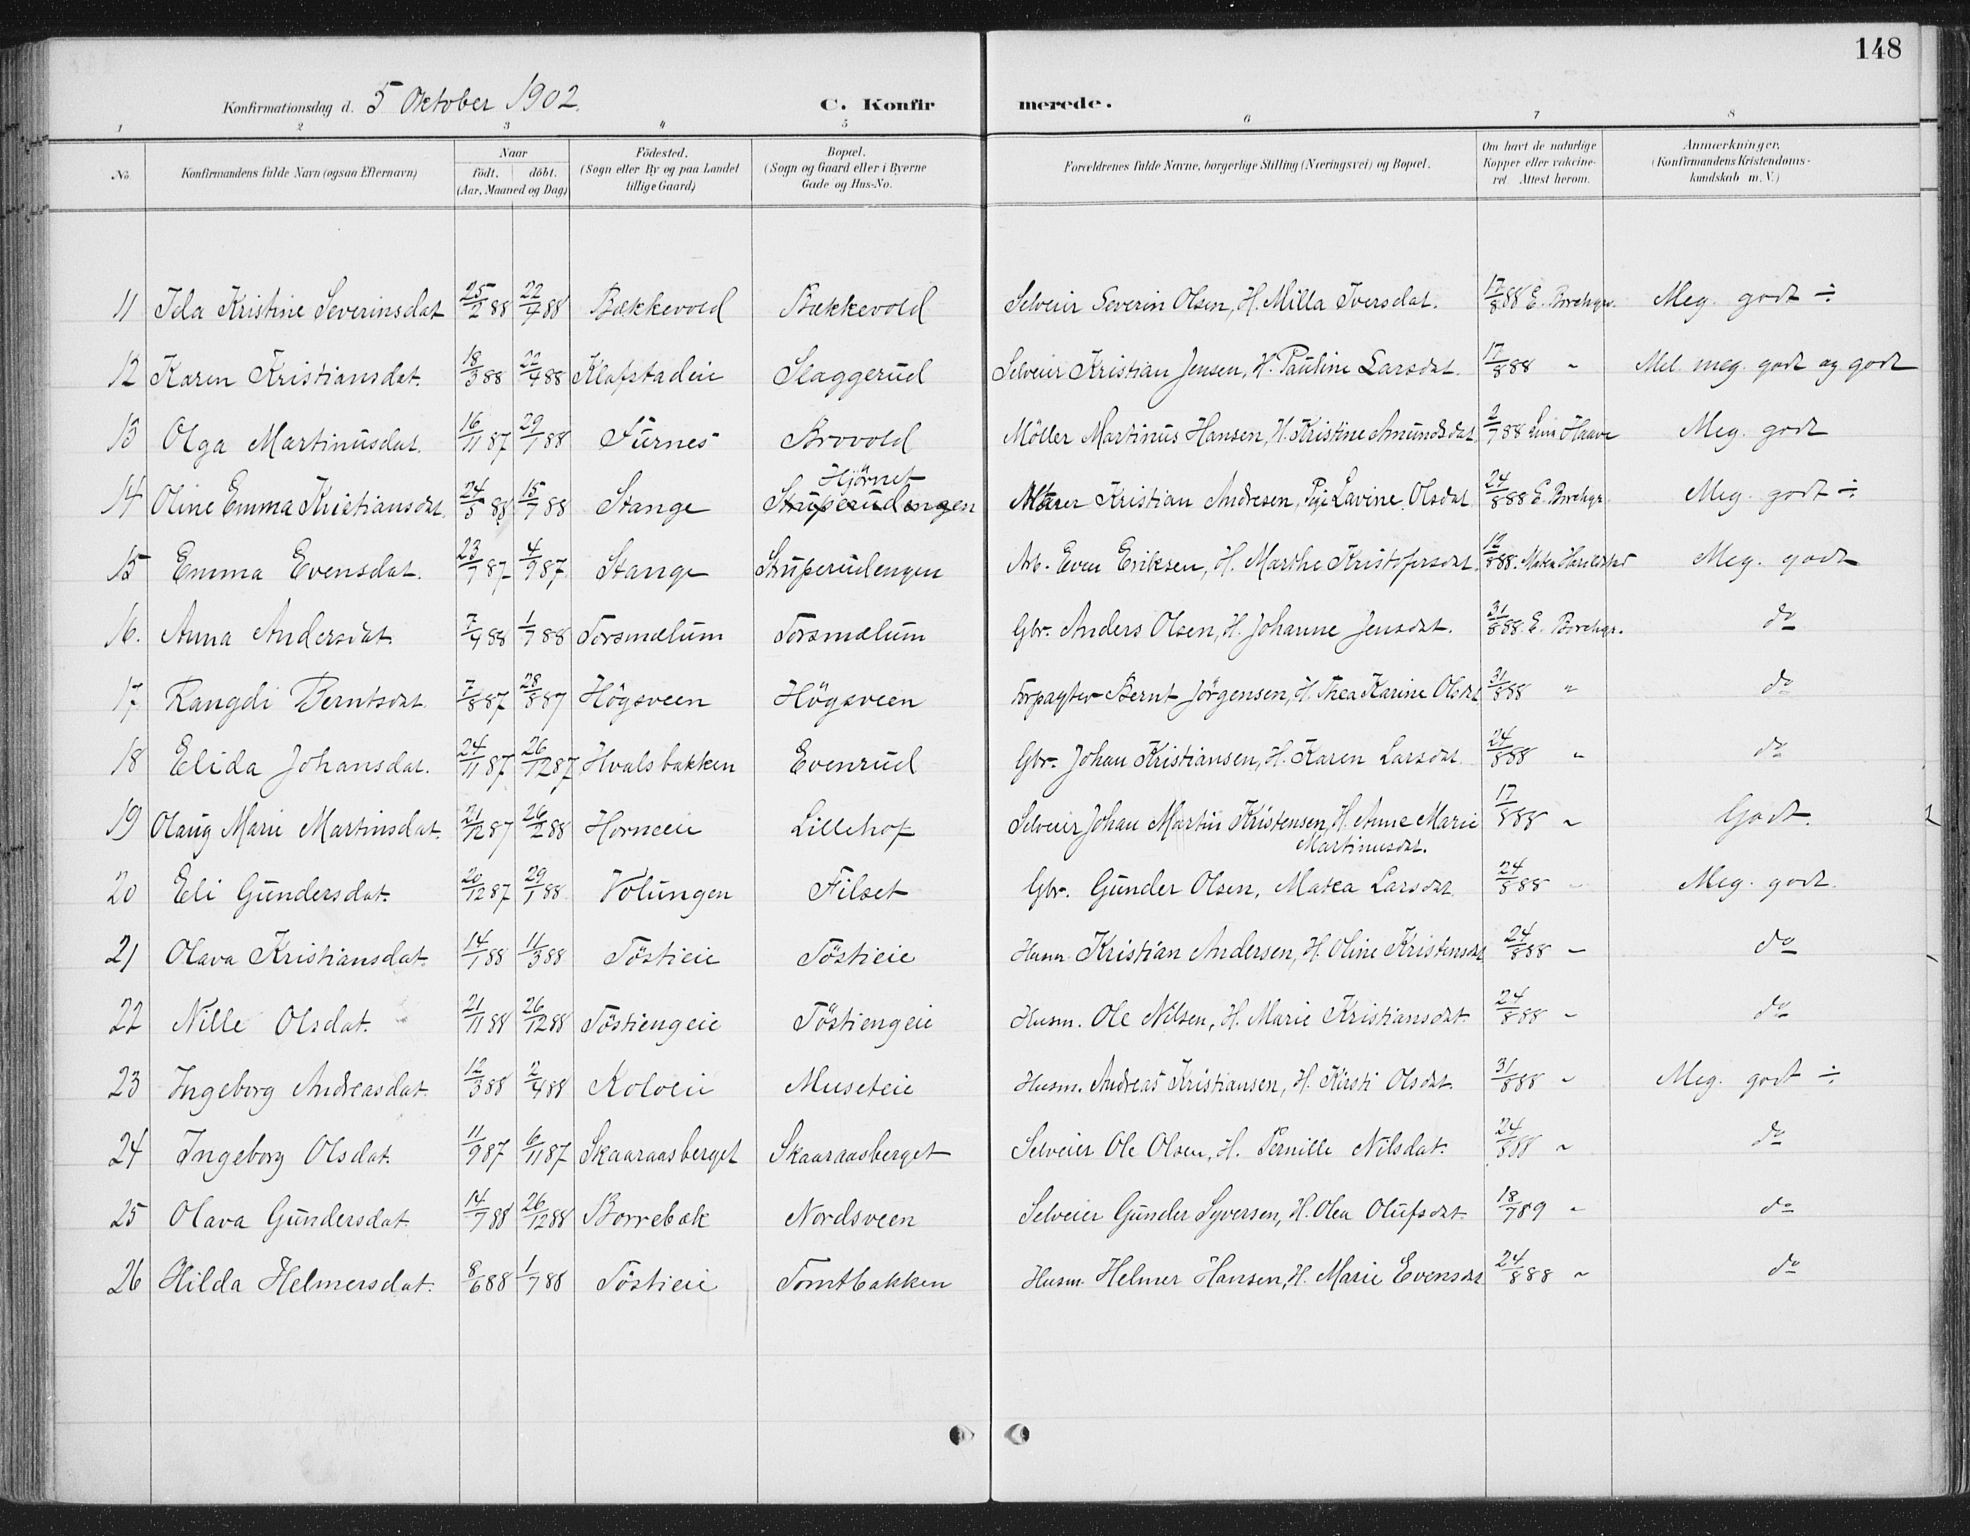 148
Konfirmationsdag d. 5 Oktober 1902. C. Konfirmerede.
1 2 3 4 5 6 7 8
No. Konfirmandens fulde Navn (ogsaa Efternavn) Naar födt. döbt. (Aar, Maaned og Dag) Födested. (Sogn eller By og paa Landet tillige Gaard) Bopæl. (Sogn og Gaard eller i Byerne Gade og Hus-No. Forældrenes fulde Navne, borgerlige Stilling (Næringsvei) og Bopæl. Om havt de naturlige Kopper eller vakcineret. Attest herom. Anmærkninger. (Konfirmandens Kristendomskundskab m. V.)
11 Ida Kristine Severinsdat 25/2 88 22/4 88 Bækkevold Bækkevold Selveier Severin Olsen, H. Milla Iversdat. 17/8 88 E. Borchgr. Meg. godt ÷
12 Karen Kristiansdat. 18/3 88 22/4 88 Klafstadeie Slaggerud Selveier Kristian Jensen, H. Pauline Larsdat. 17/8 88 " Mel. meg. godt og godt
13 Olga Martinusdat. 16/11 87 29/1 88 Furnes Brovold Möller Martinus Hansen, H. Kristine Amundsdat 2/7 88 Haave Meg. godt
14 Oline Emma Kristiansdat. 24/5 88 15/7 88 Stange Hjörnet Stuperudengen Murer Kristian Andresen, Pige Lavine Olsdat 24/8 88 E. Borchgr. Meg. godt ÷
15 Emma Evensdat. 23/7 87 4/9 87 Stange Stuperudengen Arb. Even Eriksen, H. Marthe Kristofersdat. 12/8 88. Meg. godt
16. Anna Andersdat 7/4 88 1/7 88 Torsmælum Torsmælum Gbr. Anders Olsen, H. Johanne Jensdat. 31/8 88. E. Borchgr. do
17 Rangdi Berntsdat. 7/8 87 28/8 87 Högsveen Högsveen Forpagter Bernt Jörgensen, H. Thea Karine Olsdat 31/8 88 " do
18 Elida Johansdat. 24/11 87 26/12 87 Hvalsbakken Evenrud Gbr. Johan Kristiansen, H. Karen Larsdat. 24/8 88 " do
19 Olaug Marie Martinsdat. 21/12 87 26/2 88 Horneeie Lillehof Selveier Johan Martin Kristensen, H. Anne Marie
Martinusdat. 17/8 88 " Godt.
20 Eli Gundersdat. 20/12 87 29/1 88 Volungen Filset Gbr. Gunder Olsen, Matea Larsdat 24/8 88 " Meg. godt.
21 Olava Kristiansdat. 14/1 88 11/3 88 Töstieie Töstieie Husm. Kristian Andersen, H. Oline Kristensdat 24/8 88 " do
22 Nille Olsdat. 21/11 88 26/12 88 Töstiengeie Töstiengeie Husm. Ole Nilsen, H. Marie Kristiansdat. 24/8 88 " do
23 Ingeborg Andreasdat. 12/3 88 2/4 88 Koloeie Museteie Husm. Andreas Kristiansen, H. Kirsti Olsdat. 31/8 88 " Meg. godt ÷
24 Ingeborg Olsdat. 11/9 87 6/11 87 Skaaraasberget Skaaraasberget Selveier Ole Olsen, H. Pernille Nilsdat. 24/8 88 " do
25 Olava Gundersdat. 14/7 88 26/12 88 Borrebæk Nordsveen Selveier Gunder Syversen, H. Olea Olufsdat. 18/7 89 " do
26 Hilda Helmersdat. 8/6 88 1/7 88 Töstieie Tomtbakken Husm. Helmer Hansen, H. Marie Evensdat 24/8 88 " do